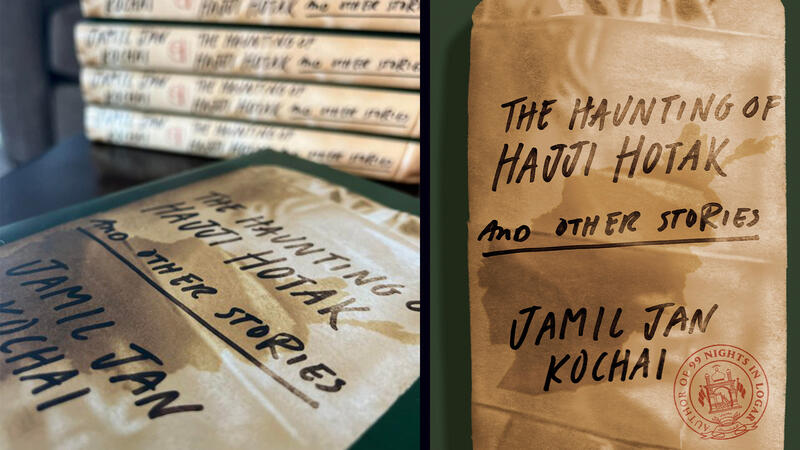 HAJJI HOTAK AND OTHER STORIES
JAMIL JAN
KOCHAI
THE HAUNTING OF
HAJJI HOTAK AND OTHER STORIES
JAMIL JAN
KOCHAI
THE HAUNTING OF
HAJJI HOTAK AND OTHER STORIES
JAMIL JAN
KOCHAI
THE HAUNTING OF
HAJJI HOTAK AND OTHER STORIES
THE HAUNTING O
HAJJI HOTAK
AND OTHER STORIES
JAMIL JAN
KOCHAI
THE HAUNTING OF
HAJJI HOTAK
AND OTHER STORIES
JAMIL JAN
KOCHAI
AUTHOR OF 99 NIGHTS IN LOGAR